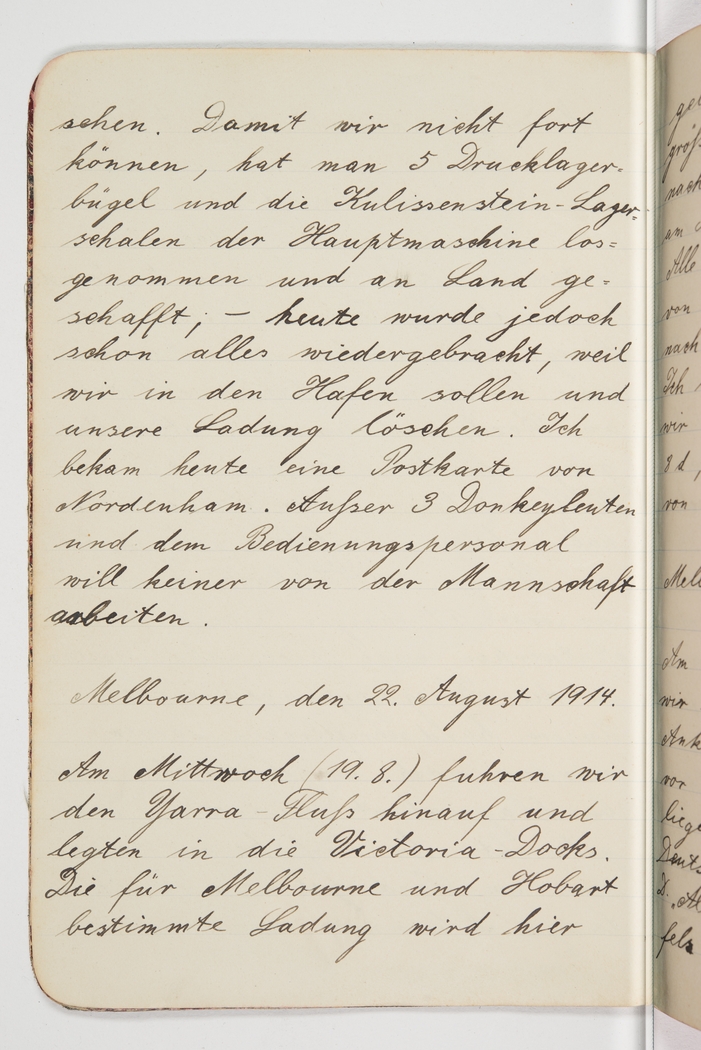 sehen. Damit wir nicht fort
können, hat man 5 Drucklager=
bügel und die Kulissenstein-Lager=
schalen der Hauptmaschine los=
genommen und an Land ge=
schafft; – heute wurde jedoch
schon alles wiedergebracht, weil
wir in den Hafen sollen und
unsere Ladung löschen. Ich
bekam heute eine Postkarte von
Nordenham. Außer 3 Donkeyleuten
und dem Bedienungspersonal
will keiner von der Mannschaft
arbeiten.
Melbourne, den 22. August 1914.
Am Mittwoch (19. 8.) fuhren wir
den Yarra-Fluß hinauf und
legten in die Victoria-Docks.
Die für Melbourne und Hobart
bestimmte Ladung wird hier
nach
am
Alle
von
nach
Ich
wir
8 d,
von
Am
wir
vor